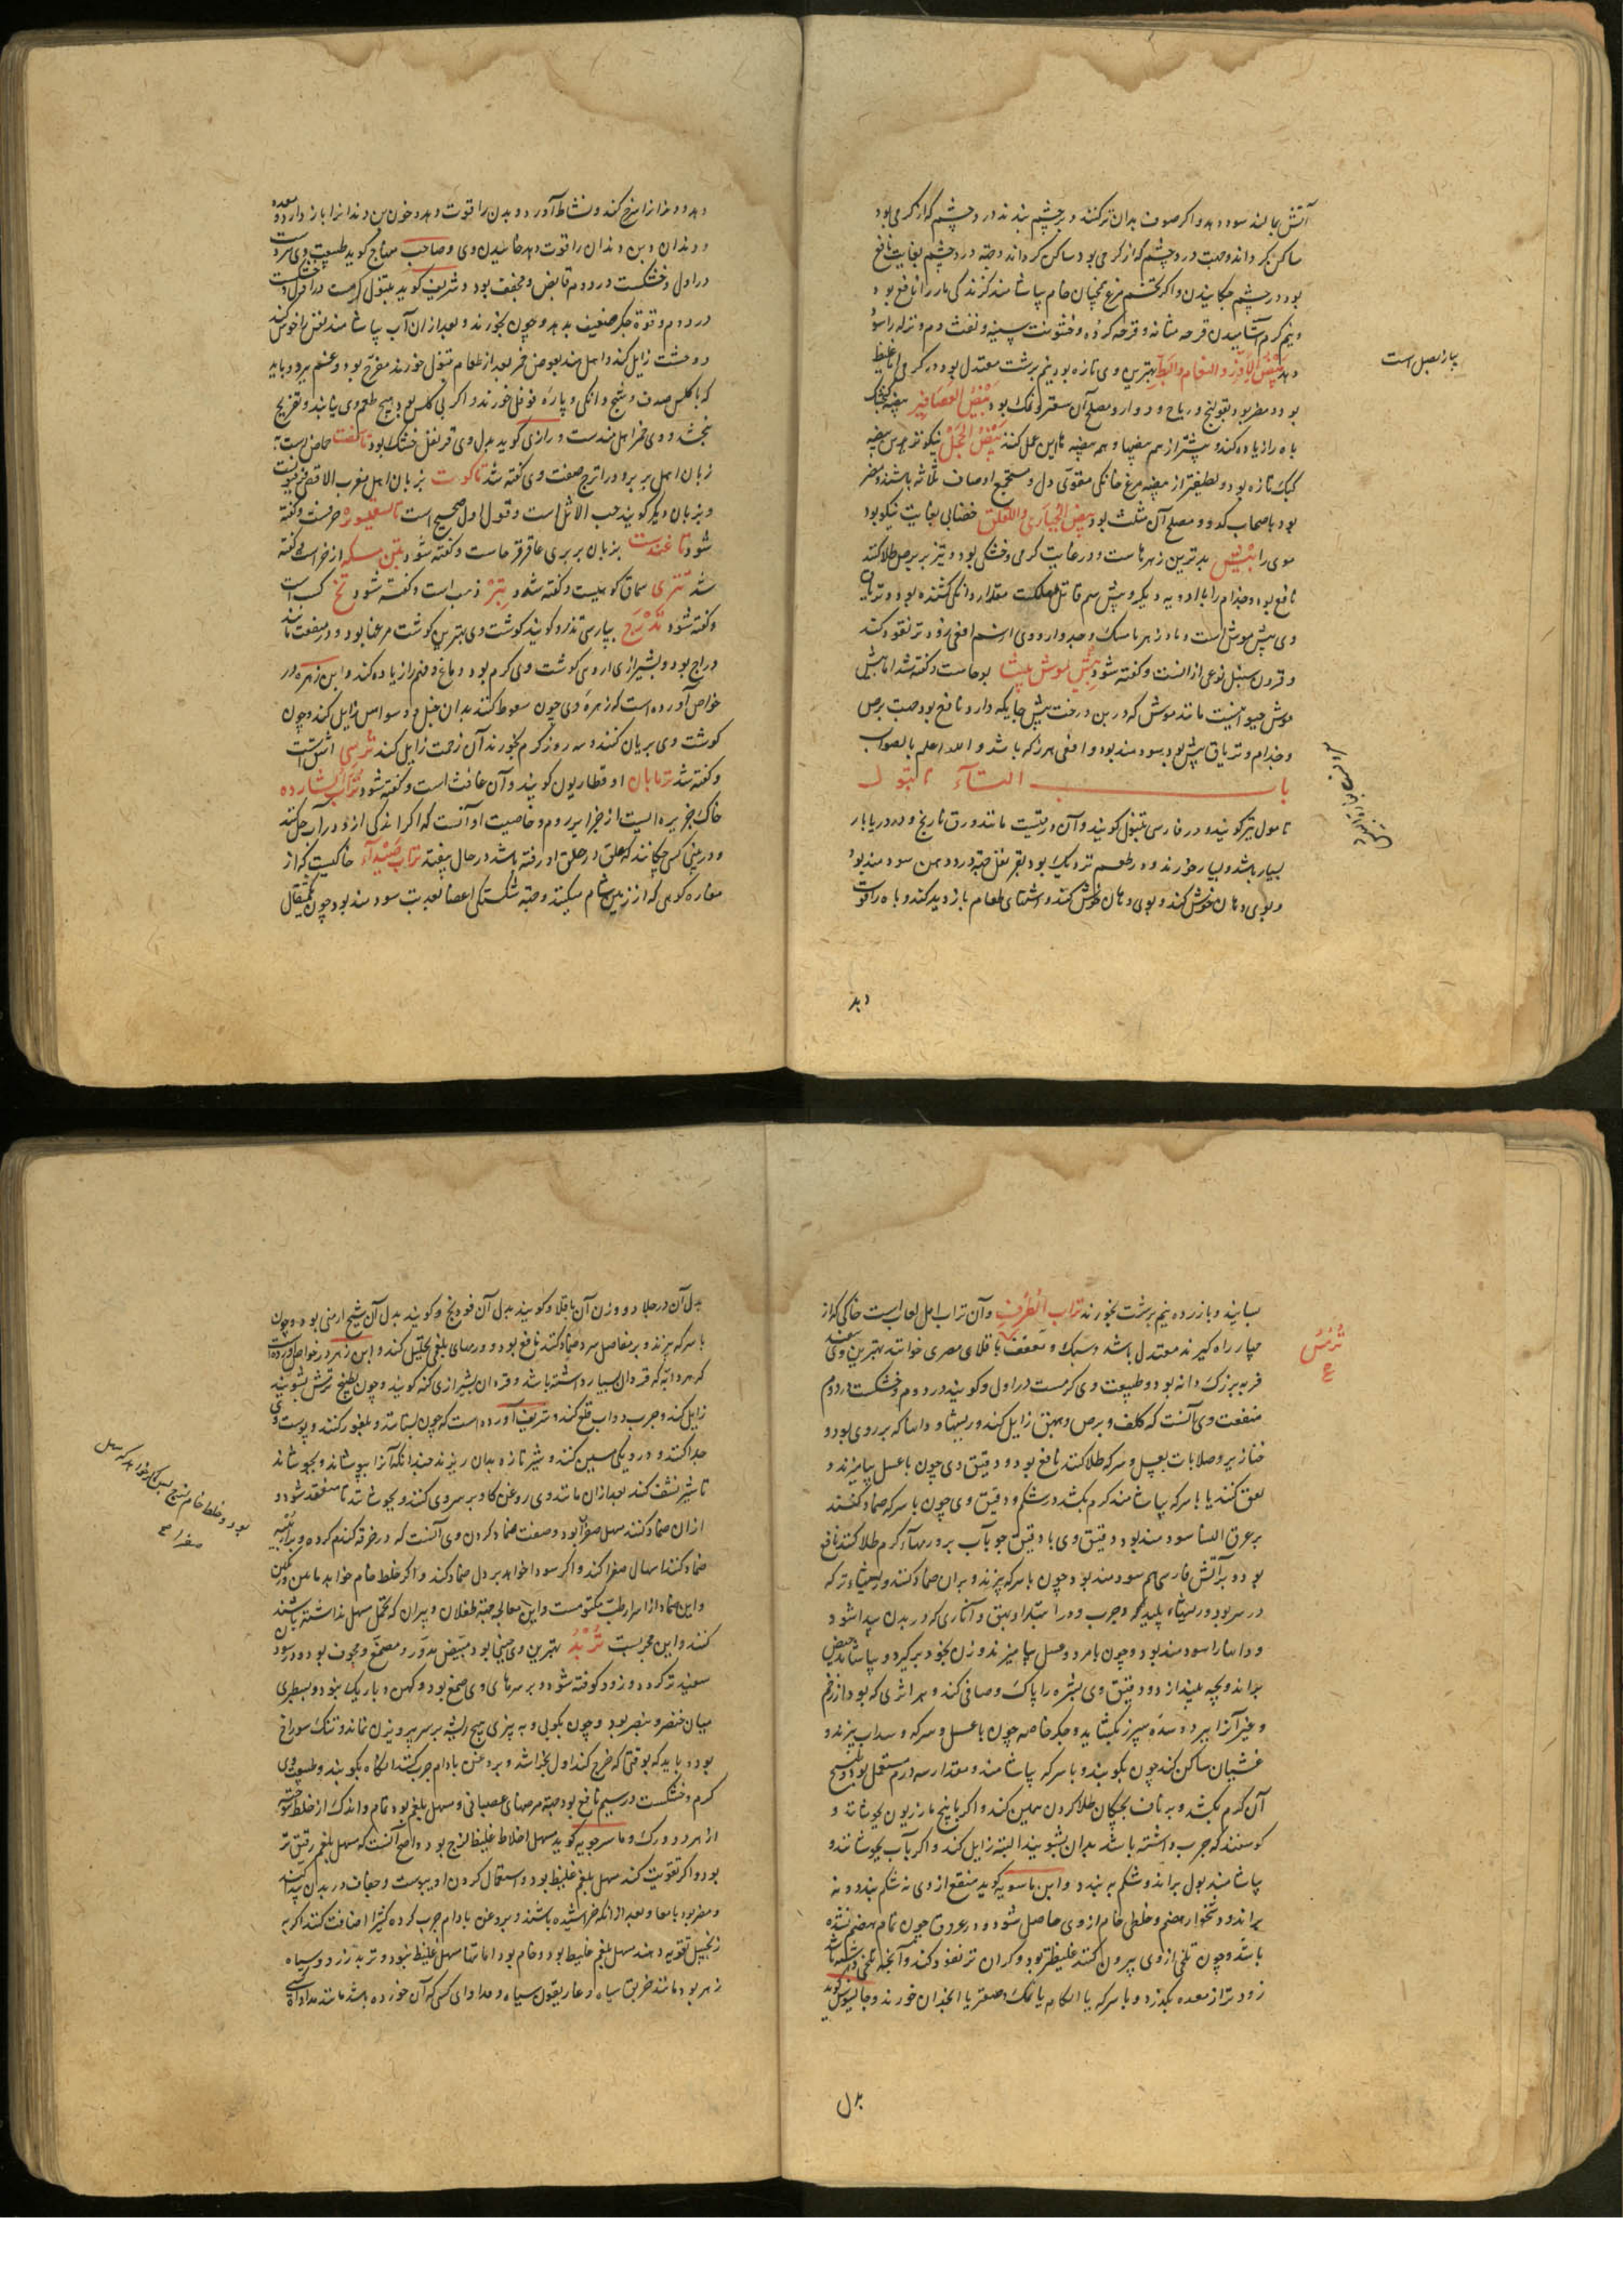 آتش بمالند سود دهد و اگر صوف بدان تر کنند و بر چشم بندند درد چشم که از گرمی بود
ساکن گرداند و جهت درد چشم که از گرمی بود ساکن گرداند و جهة درد چشم بغایت نافع
بود در چشم چکانیدن و اگر تخم مرغ همچنان خام بیاشامند گزندگی مار را نافع بود
و نیم گرم آشامیدن قرحه مثانه و قرحه گرده و خشونت سینه و نفث دم و نزله را سود
دهد بیض الاوز و النعام و البط بهترین وی تازه بود و نیم برشت معتدل بود در گرمی اما غلیظ
بود و مضر بود بقولنج و ریاح و دوار و مصلح آن سعتر و نمک بود بیض العصافیر بیضه گنجشک
باه را زیاده کند و بیشتر از همه بیضها و همه بیضه ها این عمل کنند بیض الحجل نیکوترین بیضه
کبک تازه بود و لطیفتر از بیضه مرغ خانگی مقوی دل و مستجمع اوصاف ثلاثه باشند و مضر
بود باصحاب کد و مصلح آن مثلث بود بیض الحباری و اللقلق خضابی بغایت نیکو بود
موی را بیش بدترین زهرهاست و در غایت گرمی و خشکی بود و تیز بر برص طلا کنند
نافع بود و جذام را با ادویه دیگر و بیش سم قاتل مهلکست مقدار دانگی کشنده بود و تریاق
وی بیش موش است و پادزهر با مسک و جدوار و وی از سم افعی زودتر نفوذ کند
و قرون سنبل نوعی از انست و گفته شود بیش موش بیشا بوحاست و گفته شد اما بیش
موش حیوانیست مانند موش که در بن درخت بیش جایگه دارد و نافع بود جهت برص
و جذام و تریاق بیش بود و سودمند بود و افعی هرز که باشد و الله اعلم بالصواب
باب التاء تانبول
تامول نیز گویند و در فارسی تنبول گویند و آن ورقیست مانند ورق نارنج و در دریابار
بسیار باشد و بسیار خورند و در طعم نزدیک بود بقرنفل جهة درد دهن سودمند بود
و بوی دهان خوش کند و بوی دهان خوش کند و اشتهای طعام بازدید کند و باه را قوت
دهد
پیاز بصل است
دهد و دندانرا سرخ کند و نشاط آورد و بدن را قوت دهد و خون بن دندانرا باز دارد و معده
و دندان و بن دندان را قوت دهد خاییدن وی و صاحب منهاج گوید طبیعت وی سردست
در اول و خشکست در دوم قابض و مجفف بود و شریف گوید تنبول گرمست در اول و خشکست
در دوم و قوة جگر ضعیف بدهد و چون بخورند و بعد از ان آب بیاشامند نفس را خوش کند
و وحشت زایل کند و اهل هند بعوض خمر بعد از طعام تنبول خورند مفرح بود و غم ببرد و باید
که با کلس صدف و شج دانگی و پاره فوفل خورند و اگر بی کلس بود هیچ طعم وی نیابند و تفریح
نبخشد و وی خمر اهل هندست و رازی گوید بدل وی قرنفل خشک بود تافغیت حاص است
زبان اهل بربر و در اترج صفت وی گفته شد تاکوت بزبان اهل مغرب الاقصی فرفیونست
و بزبان دیگر گویند حب الاثل است و قول اول صحیح است تالسفیس حرفست و گفته
شود تاغندست بزبان بربری عاقرقرحاست و گفته شود تبن مکه اذخر است گفته
شد تتری سماق کوهیست و گفته شد و تبر ذهب است و گفته شود تخ کسب است
و گفته شود تدرج بپارسی تذرو گویند گوشت وی بهترین گوشت مرغها بود و در منفعت مانند
دراج بود و بشیرازی اروی گوشت وی گرم بود و دماغ و فهم را زیاده کند و ابن زهر در
خواص آورده است که زهره وی چون سعوط کنند بدان خبل و وسواس زایل کند و چون
گوشت وی بریان کنند و سه روز گرم بخورند آن زحمت زایل کند ترسی اشراس است
و گفته شد ترنابان او قطاریون گویند و آن غافث است و گفته شود تراب الشارده
خاک جزیره ایست از جزایر روم و خاصیت او آنست که اگر اندکی از و در آب حل کنند
و در بینی کسی چکانند که علق در حلق او رفته باشد در حال بیفتد تراب صیدآء خاکیست که از
مغاره کوهی که از زمین شام میکنند و جهة شکستگی اعضا بغایت سودمند بود چون یکمثقال
بسایند و با زرده نیم برشت بخورند تراب العرف و آن تراب اهل لعابست خاکی که از
چهار راه گیرند معتدل باشد و سبک و مجفف باقلای مصری خوانند بهترین وی سفید
فربه بزرگ دانه بود و طبیعت وی گرمست در اول و گویند در دوم و خشکست در دوم
منفعت وی آنست که کلف و برص و بهق زایل کند و ریشها و دانها که بر روی بود و
خنازیر و صلابات بعسل و سرکه طلا کنند نافع بود و دقیق وی چون با عسل بیامیزند و
لعق کنند یا با سرکه بیاشامند کرم بکشد در شکم و دقیق وی چون با سرکه ضماد کنند
بر عرق النسا سودمند بود و دقیق وی با دقیق جو بآب بر ورمهآء گرم طلا کنند نافع
بود و بر آتش فارسی هم سودمند بود چون با سرکه بپزند و بران ضماد کنند و ریشهاء تر که
در سر بود و ریشهاء پلید و جرب و در ابتدا و بهق و آثاری که در بدن پیدا شود
و دانها را سودمند بود و چون با مر و عسل بیامیزند و زن بخود برگیرد و بیاشامد حیض
براند و بچه بیندازد و دقیق وی بشره را پاک و صافی کند و هر اثری که بود از زخم
و غیر آنرا ببرد و سده سپرز بگشاید و جگر خاصه چون با عسل و سرکه و سداب بپزند و
غشیان ساکن کند چون بکوبند و با سرکه بیاشامند و مقدار سه درم مستعمل بود و طبیخ
آن کرم بکشد و بر ناف بچگان طلا کردن همین کند و اگر با بیخ مازریون بجوشانند و
گوسفند که جرب داشته باشد بدان بشویند البته زایل کند و اگر بآب بجوشانند و
بیاشامند بول براند و شکم ببندد و ابن ماسویه گوید منقع از وی نه شکم ببندد و نه
براند و دشخوار هضم و خلطی خام از وی حاصل شود در عروق چون تمام هضم نشده
باشد و چون تلخی از وی بیرون کنند غلیظتر بود و گران تر نفوذ کند و آنچه تلخی در وی باشد
زودتر از معده بگذرد و با سرکه یا انکامه یا نمک و صعتر یا انجدان خورند و جالینوس گوید
بدل
ترمس
ع
بدل آن در جلا دو وزن آن باقلا و گویند بدل آن فودنج و گویند بدل آن شیح ارمنی بود و چون
با سرکه بپزند و بر مفاصل سرد ضماد کنند نافع بود و ورمهای بلغمی تحلیل کند و ابن زهر در خواص آورده است
که هر دابه که قردان بسیار داشته باشد و قردان بشیرازی کنه گویند و چون بطبیخ ترمس بشویند
زایل کند و جرب دواب قلع کند و شریف آورده است که چون بستانند و بلغور کنند و پوست وی
جدا کنند و در دیگی مسین کنند و شیر تازه بدان ریزند چندانکه آنرا بپوشاند و بجوشانند
تا شیر نشف کند بعد ازان مانند وی روغن گاو بر سر وی کنند و بجوشانند تا منعقد شود و
ازان ضماد کنند مسهل صفرا بود و صفت ضماد کردن وی آنست که در خرقه گندم کرده و بر سینه
ضماد کنند اسهال صفرا کند و اگر سودا خواهد بر دل ضماد کند و اگر خلط خام خواهد مابین ورکین
و این ضماد از اسرار طب مکتومست و این معالجه جهة طفلان و پیران که تحمل مسهل نداشته باشند
کنند و این مجربست تربد بهترین وی چینی بود مبیض مدور و مصمغ و مجوف بود و در سود
سفیدتر گردد و زود کوفته شود و بر سرهای وی صمغ بود و کهن و باریک نبود و بسطبری
میان خنصر و بنصر بود و چون بکوبی و بپزی هیچ ریشه بر سر پرویزن نماند و تنک سوراخ
بود و باید که بوقتی که خرج کنند اول بخراشد و بروغن بادام چرب کنند انگاه بکوبند و طبیعت وی
گرم و خشکست در سیم نافع بود جهة مرضهای عصبانی و مسهل بلغم بود تمام و اندک از خلط سوخته
از هر دو ورک و ماسرجویه گوید مسهل اخلاط غلیظ لزج بود و اصح آنست که مسهل بلغم رقیق تر
بود و اگر تقویت کنند مسهل بلغم غلیظ بود و استعمال کردن او یبوست و جفاف در بدن پیدا کند
و مضر بود بامعا و بعد ازانکه خراشیده باشند و بروغن بادام چرب کرده کثیرا اضافت کنند اگر به
زنجبیل تقویه دهند مسهل بلغم غلیظ بود و خام بود اما تنها مسهل غلیظ نبود و تربد زرد و سیاه
زهر بود مانند خربق سیاه و غاریقون سیاه و مداوای کسی که آن خورده باشد مانند مداواة کسی
بود و خلط خام
صفرا